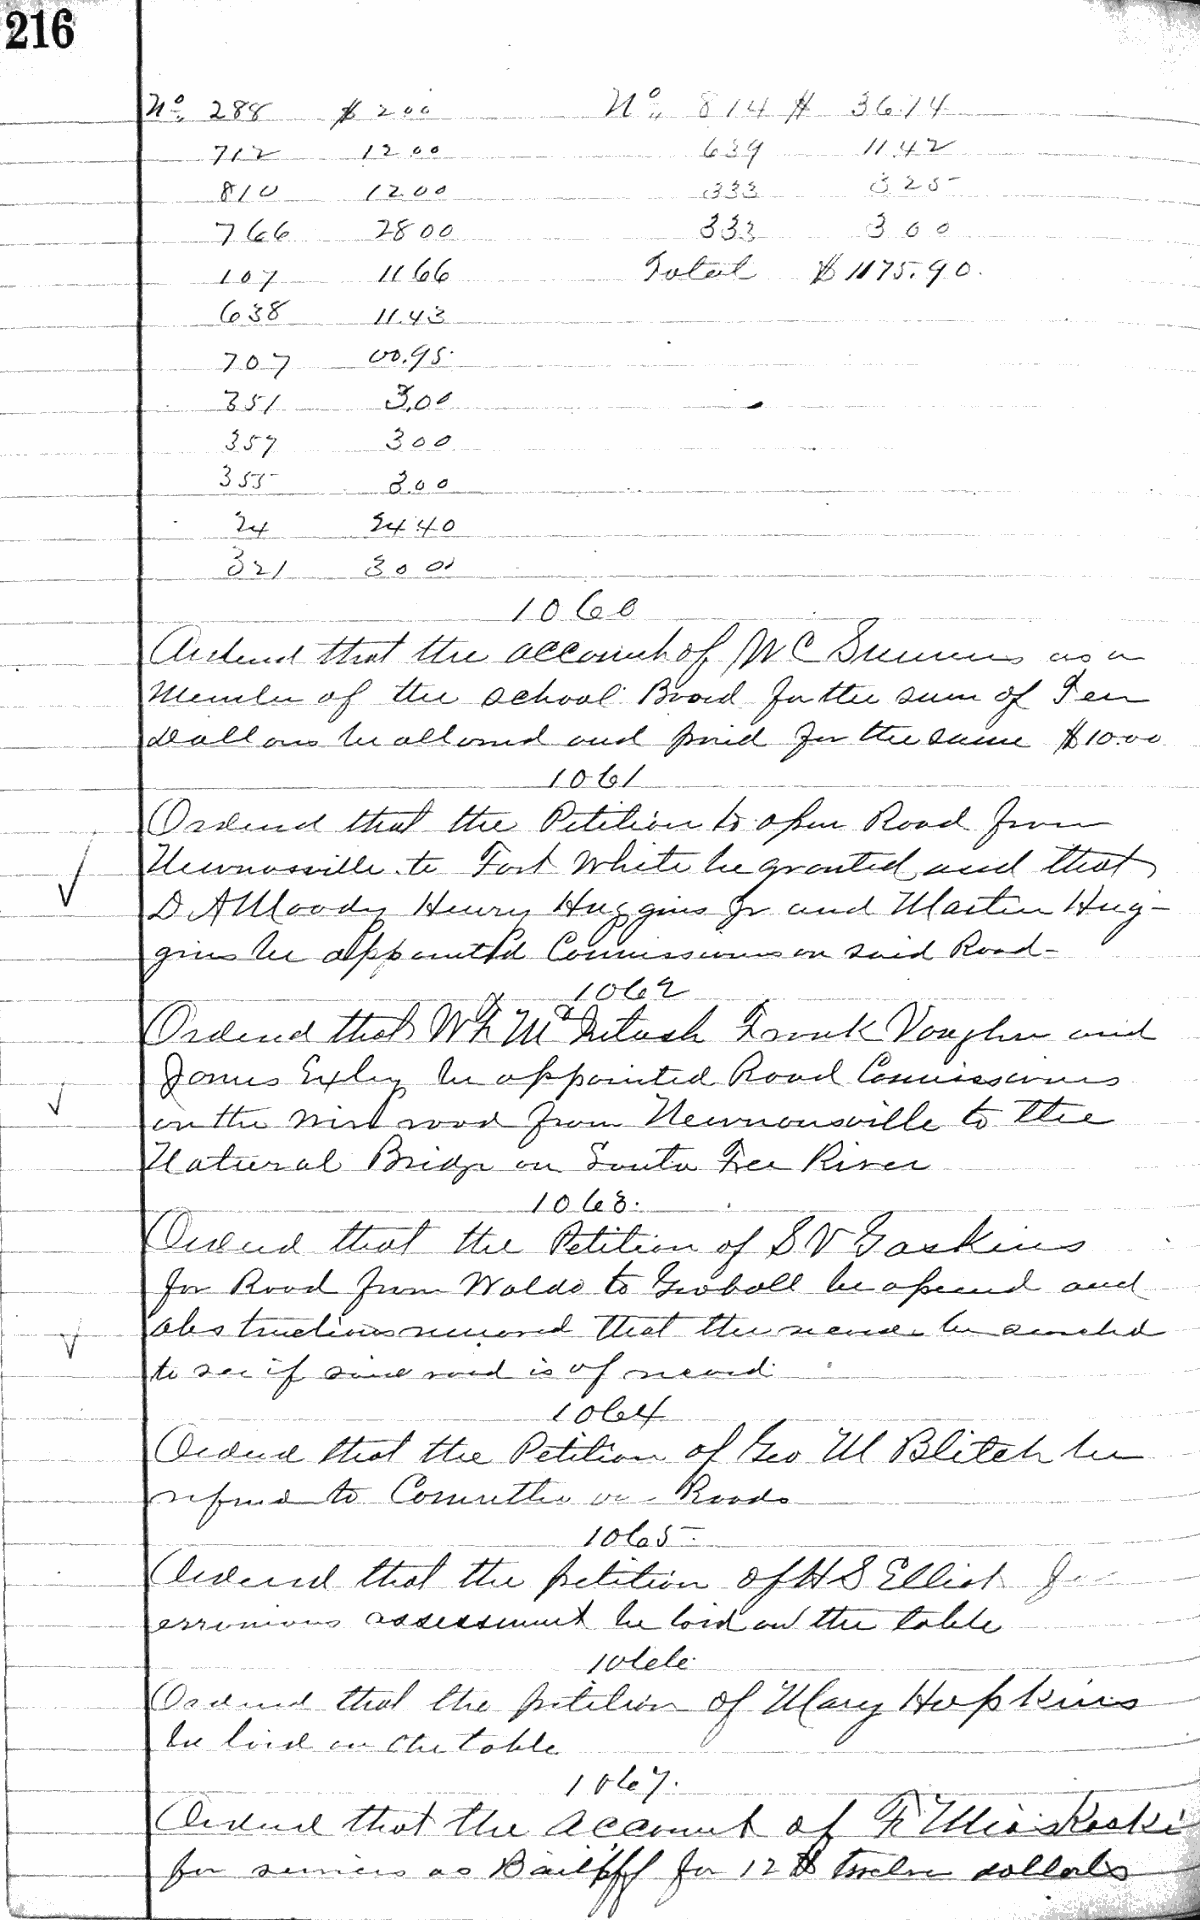 216
No. 288 $ 200 No. 814 $ 36.74
712 1200 639 11.42
810 12.00 333 325
766 2800 333 300
107 1166 Total $ 1175.90.
638 11.43
707 00.95
351 3.00
357 300
355 300
24 24 40
321 300
1060
Ordered that the account of W C Summers as a
Member of the school Board for the sum of Ten
dollars be allowed and paid for the same $10.00
1061
Ordered that the Petition to open Road from
Newnansville to Fort White be granted and that
D A Moody Henry Huggins Jr and Martin Hug-
gins be appointed Commissioners on said Road-
1062
Ordered that W F McIntosh Frank Vaughn and
James Exley be appointed Road Commissioners
on the road from Newnansville to the
Natural Bridge on Santa Fee River
1063.
Ordered that the Petition of S V Gaskins
for Road from Waldo to be opened and
obstructions removed that the be
to see if said road is of record
1064
Ordered that the Petition of Geo M Blitch be
referred to Committee on Roads
1065
Ordered that the petition of H S Elliot for
erronious assessment be laid on the table
1066
Ordered that the petition of Mary Hopkins
be laid on the table
1067.
Ordered that the account of F
for services as Bailiff for 12 $ twelve dollars